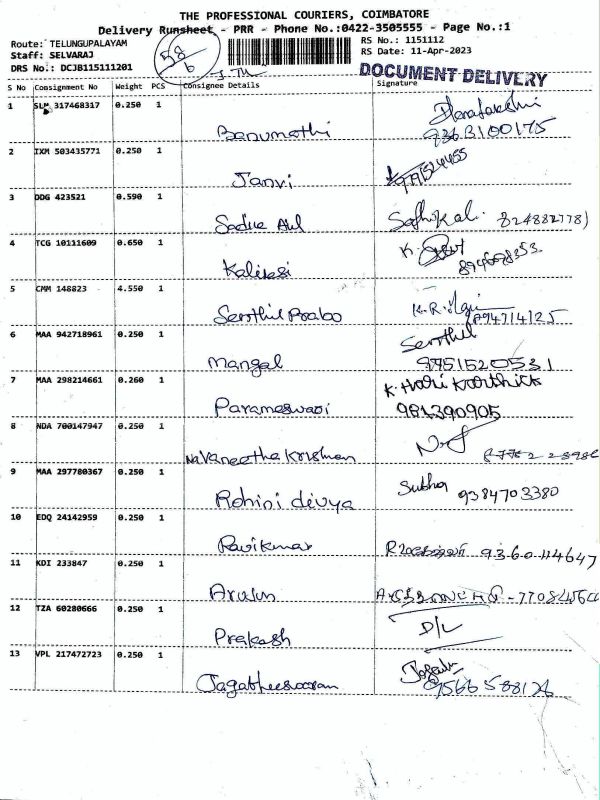 THE PROFESSIONAL COURIERS, COIMBATORE
Delivery Runsheet - PRR - Phone No.:0422-3505555 - Page No.:1
Route: TELUNGUPALAYAM
RS No.: 1151112
Staff: SELVARAJ
58
RS Date: 11-Apr-2023
DRS No.: DCJB115111201
6
DOCUMENT DELIVERY
S No Consignment No Weight PCS Consignee Details Signature
1 317468317 0.250 1
Banumathi 9363100175
2 IXM 503435771 0.250 1
Janvi
3 DDG 423521 0.590 1
4 TCG 10111609 0.650 1
K.
5 CMM 148823 4.550 1
Senthil K.R.
6 MAA 942718961 0.250 1 Senthil
Mangal 9751520531
7 MAA 298214661 0.260 1 K. Hari Karthick
Parameswari 981390905
8 NDA 700147947 0.250 1
Navaneetha Krishnan
9 MAA 297780367 0.250 1 Subha 9384703380
Rohini divya
10 EDQ 24142959 0.250 1
Ravikumar 9360114647
11 KDI 233847 0.250 1
Arulin
12 TZA 60280666 0.250 1
Prakash D/L
13 VPL 217472723 0.250 1